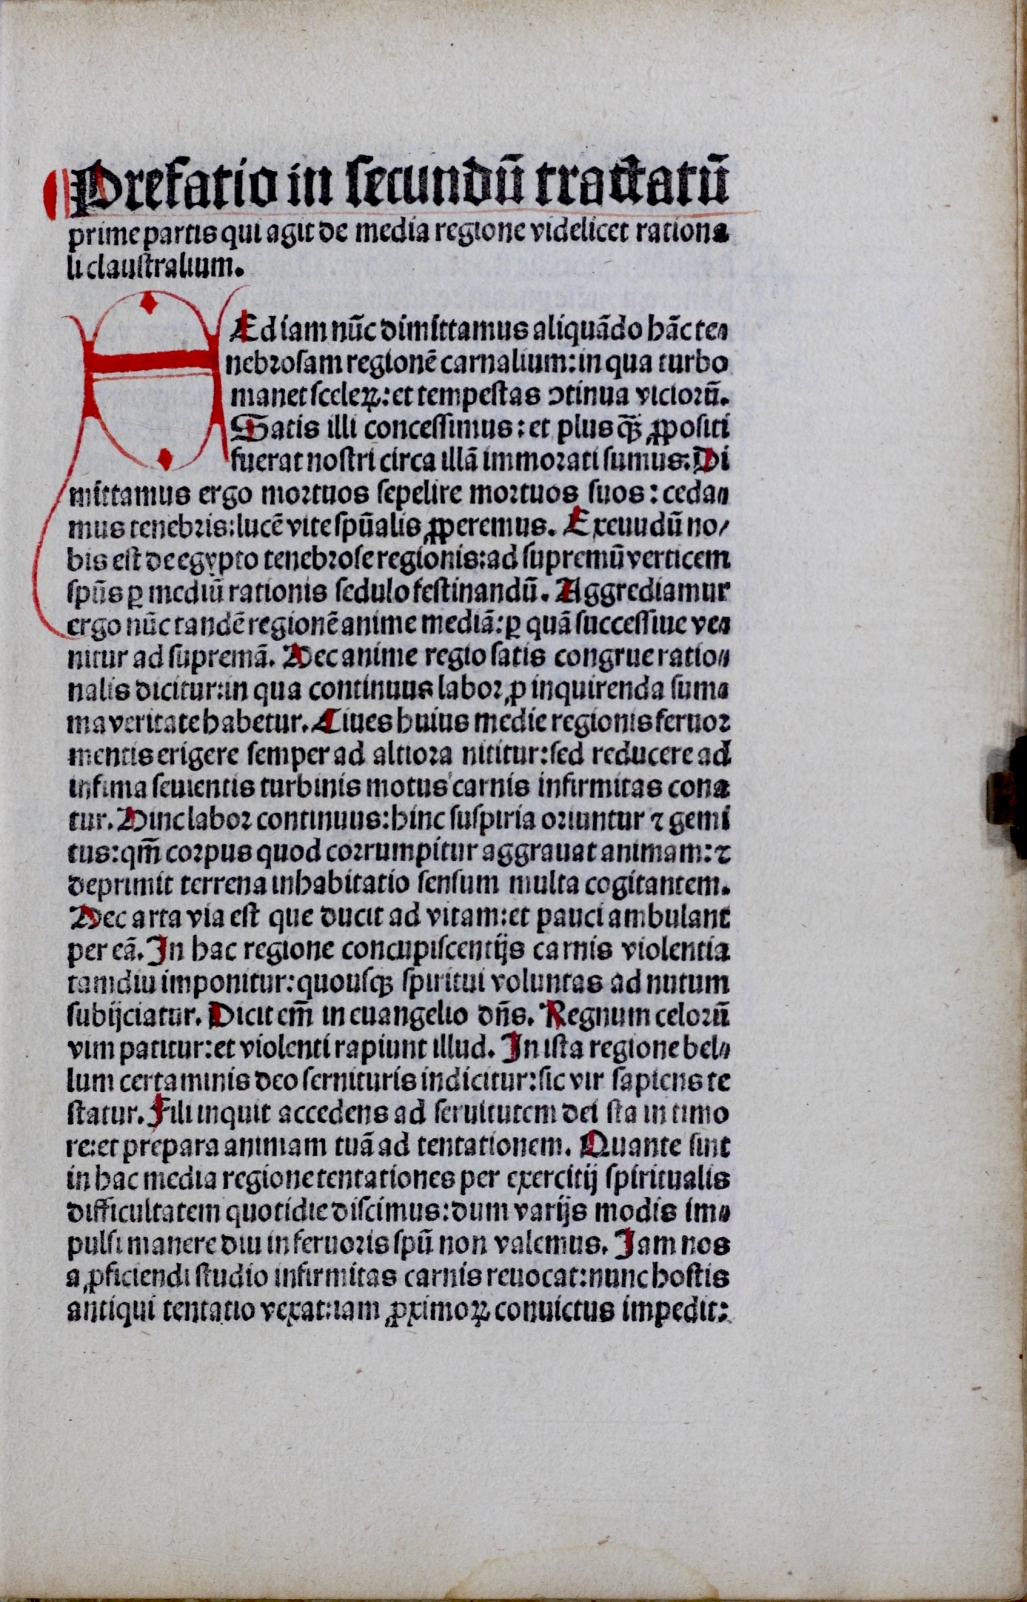 Prefatio in secundū tractatū
prime partis qui agit de media regione videlicet rationa
li claustralium.
SEd iam nūc dimittamus aliquādo hāc te⸗
nebrosam regionē carnalium: in qua turbo
manet sceleꝝ: et tempestas ↄtinua viciorū.
Satis illi concessimus: et plusq̄ꝫ ꝓpositi
fuerat nostri circa illā immorati sumus. Di
mittamus ergo mortuos sepelire mortuos suos: ceda⸗
mus tenebris: lucē vite spūalis ꝓperemus. Exeuudū no/
bis est de egypto tenebrose regionis: ad supremū verticem
spūs ꝑ mediū rationis sedulo festinandū. Aggrediamur
ergo nūc tandē regionē anime mediā: ꝑ quā successiue ve⸗
nitur ad supremā. Hec anime regio satis congrue ratio⸗
nalis dicitur: in qua continuus labor ꝓ inquirenda sum⸗
ma veritate habetur. Ciues huius medie regionis feruor
mentis erigere semper ad altiora nititur: sed reducere ad
infima seuientis turbinis motus carnis infirmitas cona
tur. Hinc labor continuus: hinc suspiria oriuntur ⁊ gemi
tus: qm̄ corpus quod corrumpitur aggrauat animam: ⁊
deprimit terrena inhabitatio sensum multa cogitantem.
Hec arta via est que ducit ad vitam: et pauci ambulant
per eā. In hac regione concupiscentijs carnis violentia
tamdiu imponitur: quousqꝫ spiritui voluntas ad nutum
subijciatur. Dicit em̄ in euangelio dn̄s. Regnum celorū
vim patitur: et violenti rapiunt illud. In ista regione bel⸗
lum certaminis deo seruituris indicitur: sic vir sapiens te
statur. Fili inquit accedens ad seruitutem dei sta in timo
re: et prepara animam tuā ad tentationem. Quante sint
in hac media regione tentationes per exercitij spiritualis
difficultatem quotidie discimus: dum varijs modis im⸗
pulsi manere diu in feruoris spū non valemus. Jam nos
a ꝓficiendi studio infirmitas carnis reuocat: nunc hostis
antiqui tentatio vexat: iam ꝓximoꝝ conuictus impedit: